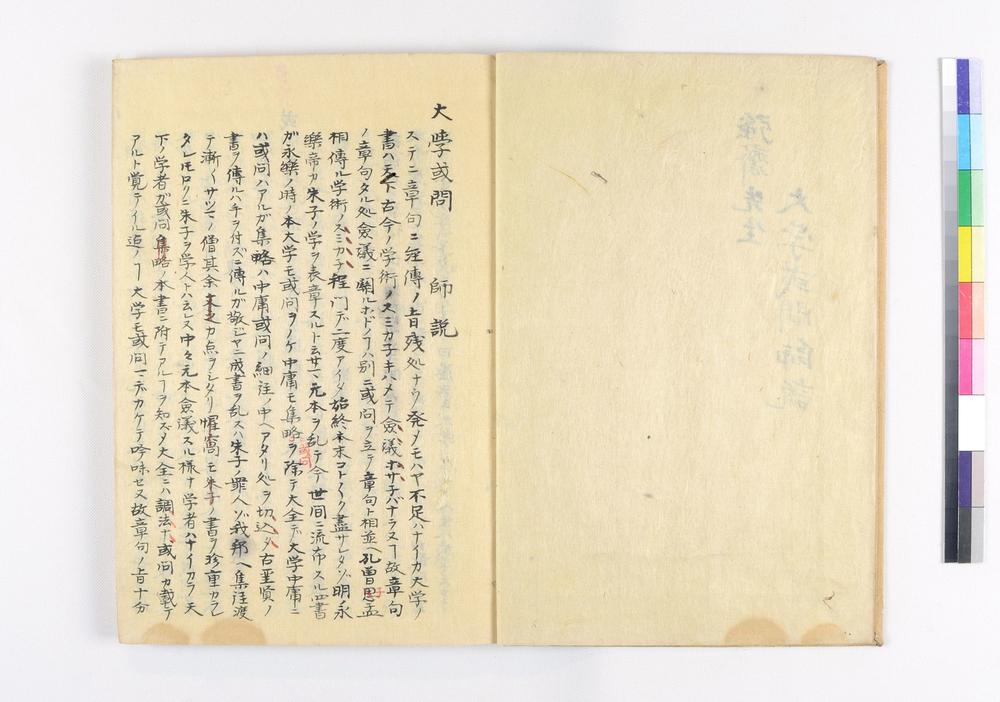 大學或問 師説
ステニ章句ニ経傳ノ上旨残処ナウ発メモハヤ不足ハナイカ大学ノ
書ハ天下古今ノ学術ノスミカ子キハメテ僉議セサ子バナラヌヿ故章句
ノ章句タル処僉議ニ關ルホドノヿハ別ニ或問ヲ立テ章句ト相並ヘ孔曽思孟
相傳ル学術ノスミカ子程門デ二度アイタ始終本末コト〱ク盡サレタゾ明永
樂帝カ朱子ノ学ヲ表章スルト云テ元本ヲ乱テ今世間ニ流布スル四書
ガ永樂ノ時ノ本大学モ或問ヲノケ中庸モ集略或問ヲ除テ大全デ大学中庸ニ
ハ或問ハアルガ集略ハ中庸或問ノ細注ノ中ヘアタリ処ヲ切込タ古聖賢ノ
書ヲ傳ルハ手ヲ付ズニ傳ルガ敬ジヤニ成書ヲ乱スハ朱子ノ罪人ゾ我邦ヘ集註渡
テ漸〱サツマノ僧其余文之カ点ヲシタリ惺窩モ朱子ノ書ヲ珍重カラレ
タレモロクニ朱子ヲ学人トハ云レス中々元本僉議スル様ナ学者ハナイカラ天
下ノ学者ガ或問集略ノ本書ニ附テアルヿヲ知ズタ大全ニハ調法ナ或問カ載テ
アルト覚テイル迠ノヿ大学モ或問マデカケテ吟味セヌ故章句ノ上旨十分
強齋先生
大学或問師説